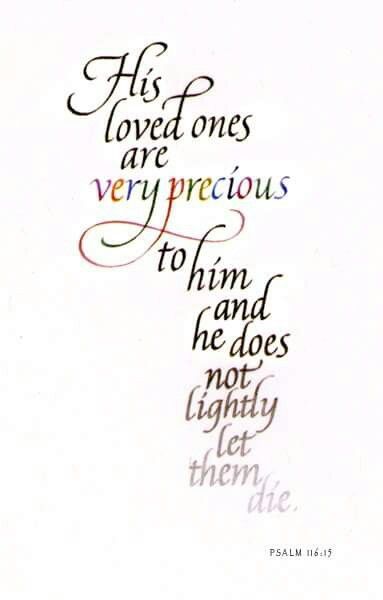 His
loved ones
are
very precious
to him
and
he does
not
lightly
let
them
die.
PSALM 116:15